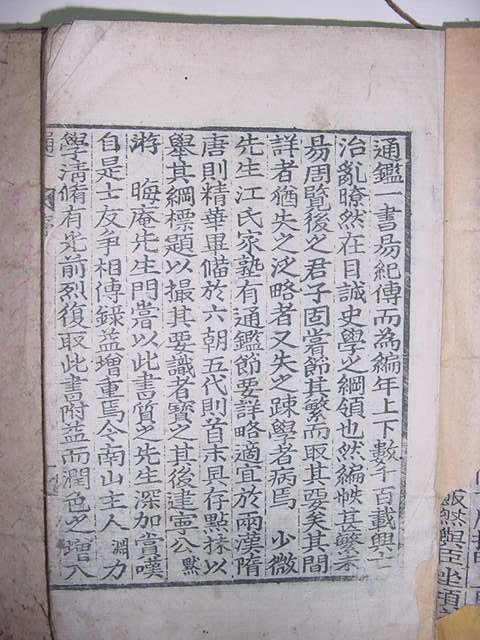 通鑑一書易紀傳而為編年上下數千百載興亡
治亂暸然在目誠史學之綱領也然編帙甚繁未
易周覽後之君子固嘗節其繁而取其要矣其間
詳者猶失之泛略者又失之疎學者病焉 少微
先生江氏家塾有通鑑節要詳略適宜於兩漢隋
唐則精華畢備於六朝五代則首末具存點抹以
舉其綱標題以撮其要識者寳之其後建寧公默
游 晦庵先生門嘗以此書質之先生深加賞嘆
自是士友爭相傳錄益增重焉今南山主人淵力
學淸脩有光前烈復取此書附益而潤色之增入